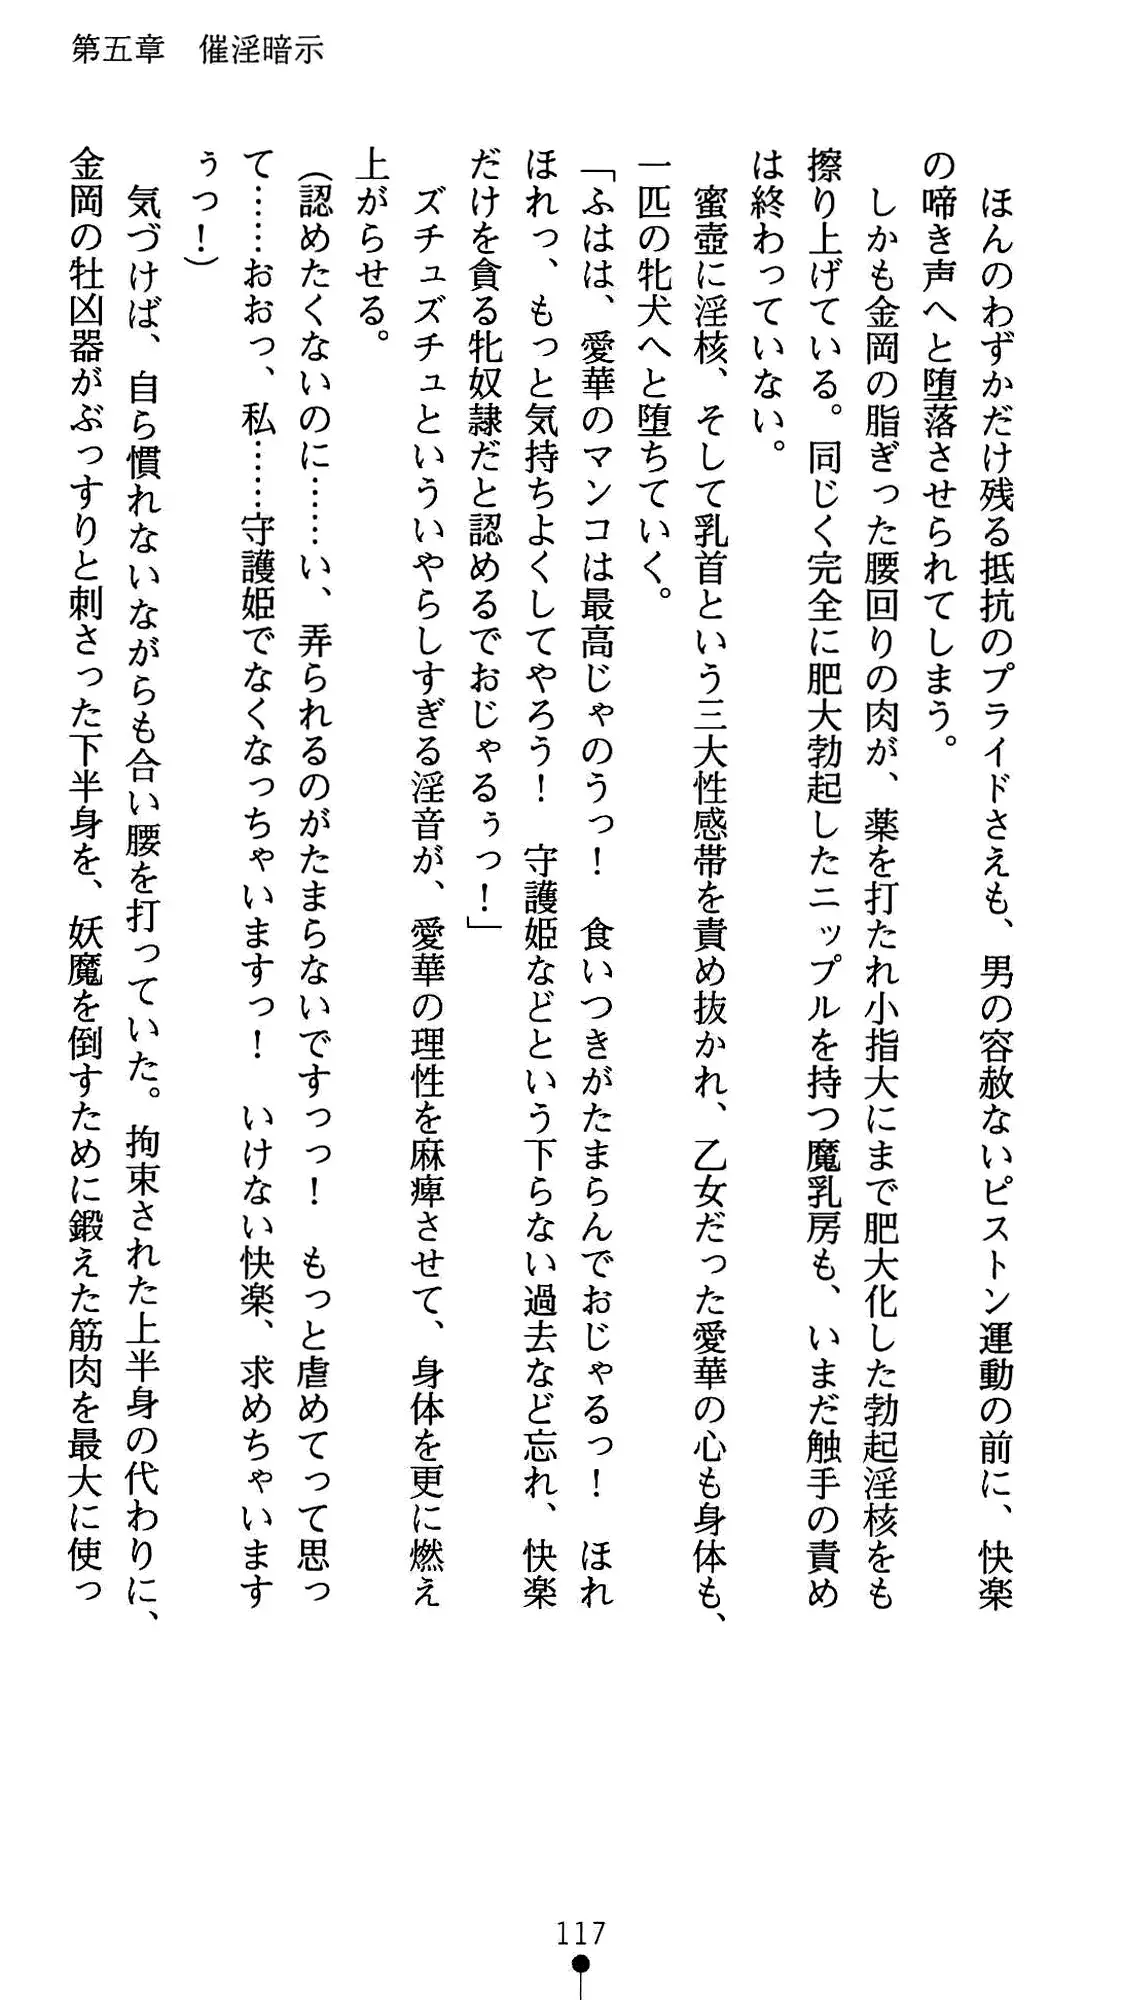 第五章　催淫暗示
　ほんのわずかだけ残る抵抗のプライドさえも、男の容赦ないピストン運動の前に、快楽
の啼き声へと堕落させられてしまう。
　しかも金岡の脂ぎった腰回りの肉が、薬を打たれ小指大にまで肥大化した勃起淫核をも
擦り上げている。同じく完全に肥大勃起したニップルを持つ魔乳房も、いまだ触手の責め
は終わっていない。
　蜜壺に淫核、そして乳首という三大性感帯を責め抜かれ、乙女だった愛華の心も身体も、
一匹の牝犬へと堕ちていく。
「ふはは、愛華のマンコは最高じゃのうっ！　食いつきがたまらんでおじゃるっ！　ほれ
ほれっ、もっと気持ちよくしてやろう！　守護姫などという下らない過去など忘れ、快楽
だけを貪る牝奴隷だと認めるでおじゃるぅっ！」
　ズチュズチュといういやらしすぎる淫音が、愛華の理性を麻痺させて、身体を更に燃え
上がらせる。
（認めたくないのに……い、弄られるのがたまらないですっっ！　もっと虐めてって思っ
て……おおっ、私……守護姫でなくなっちゃいますっ！　いけない快楽、求めちゃいます
ぅっ！）
　気づけば、自ら慣れないながらも合い腰を打っていた。拘束された上半身の代わりに、
金岡の牡凶器がぶっすりと刺さった下半身を、妖魔を倒すために鍛えた筋肉を最大に使っ
117